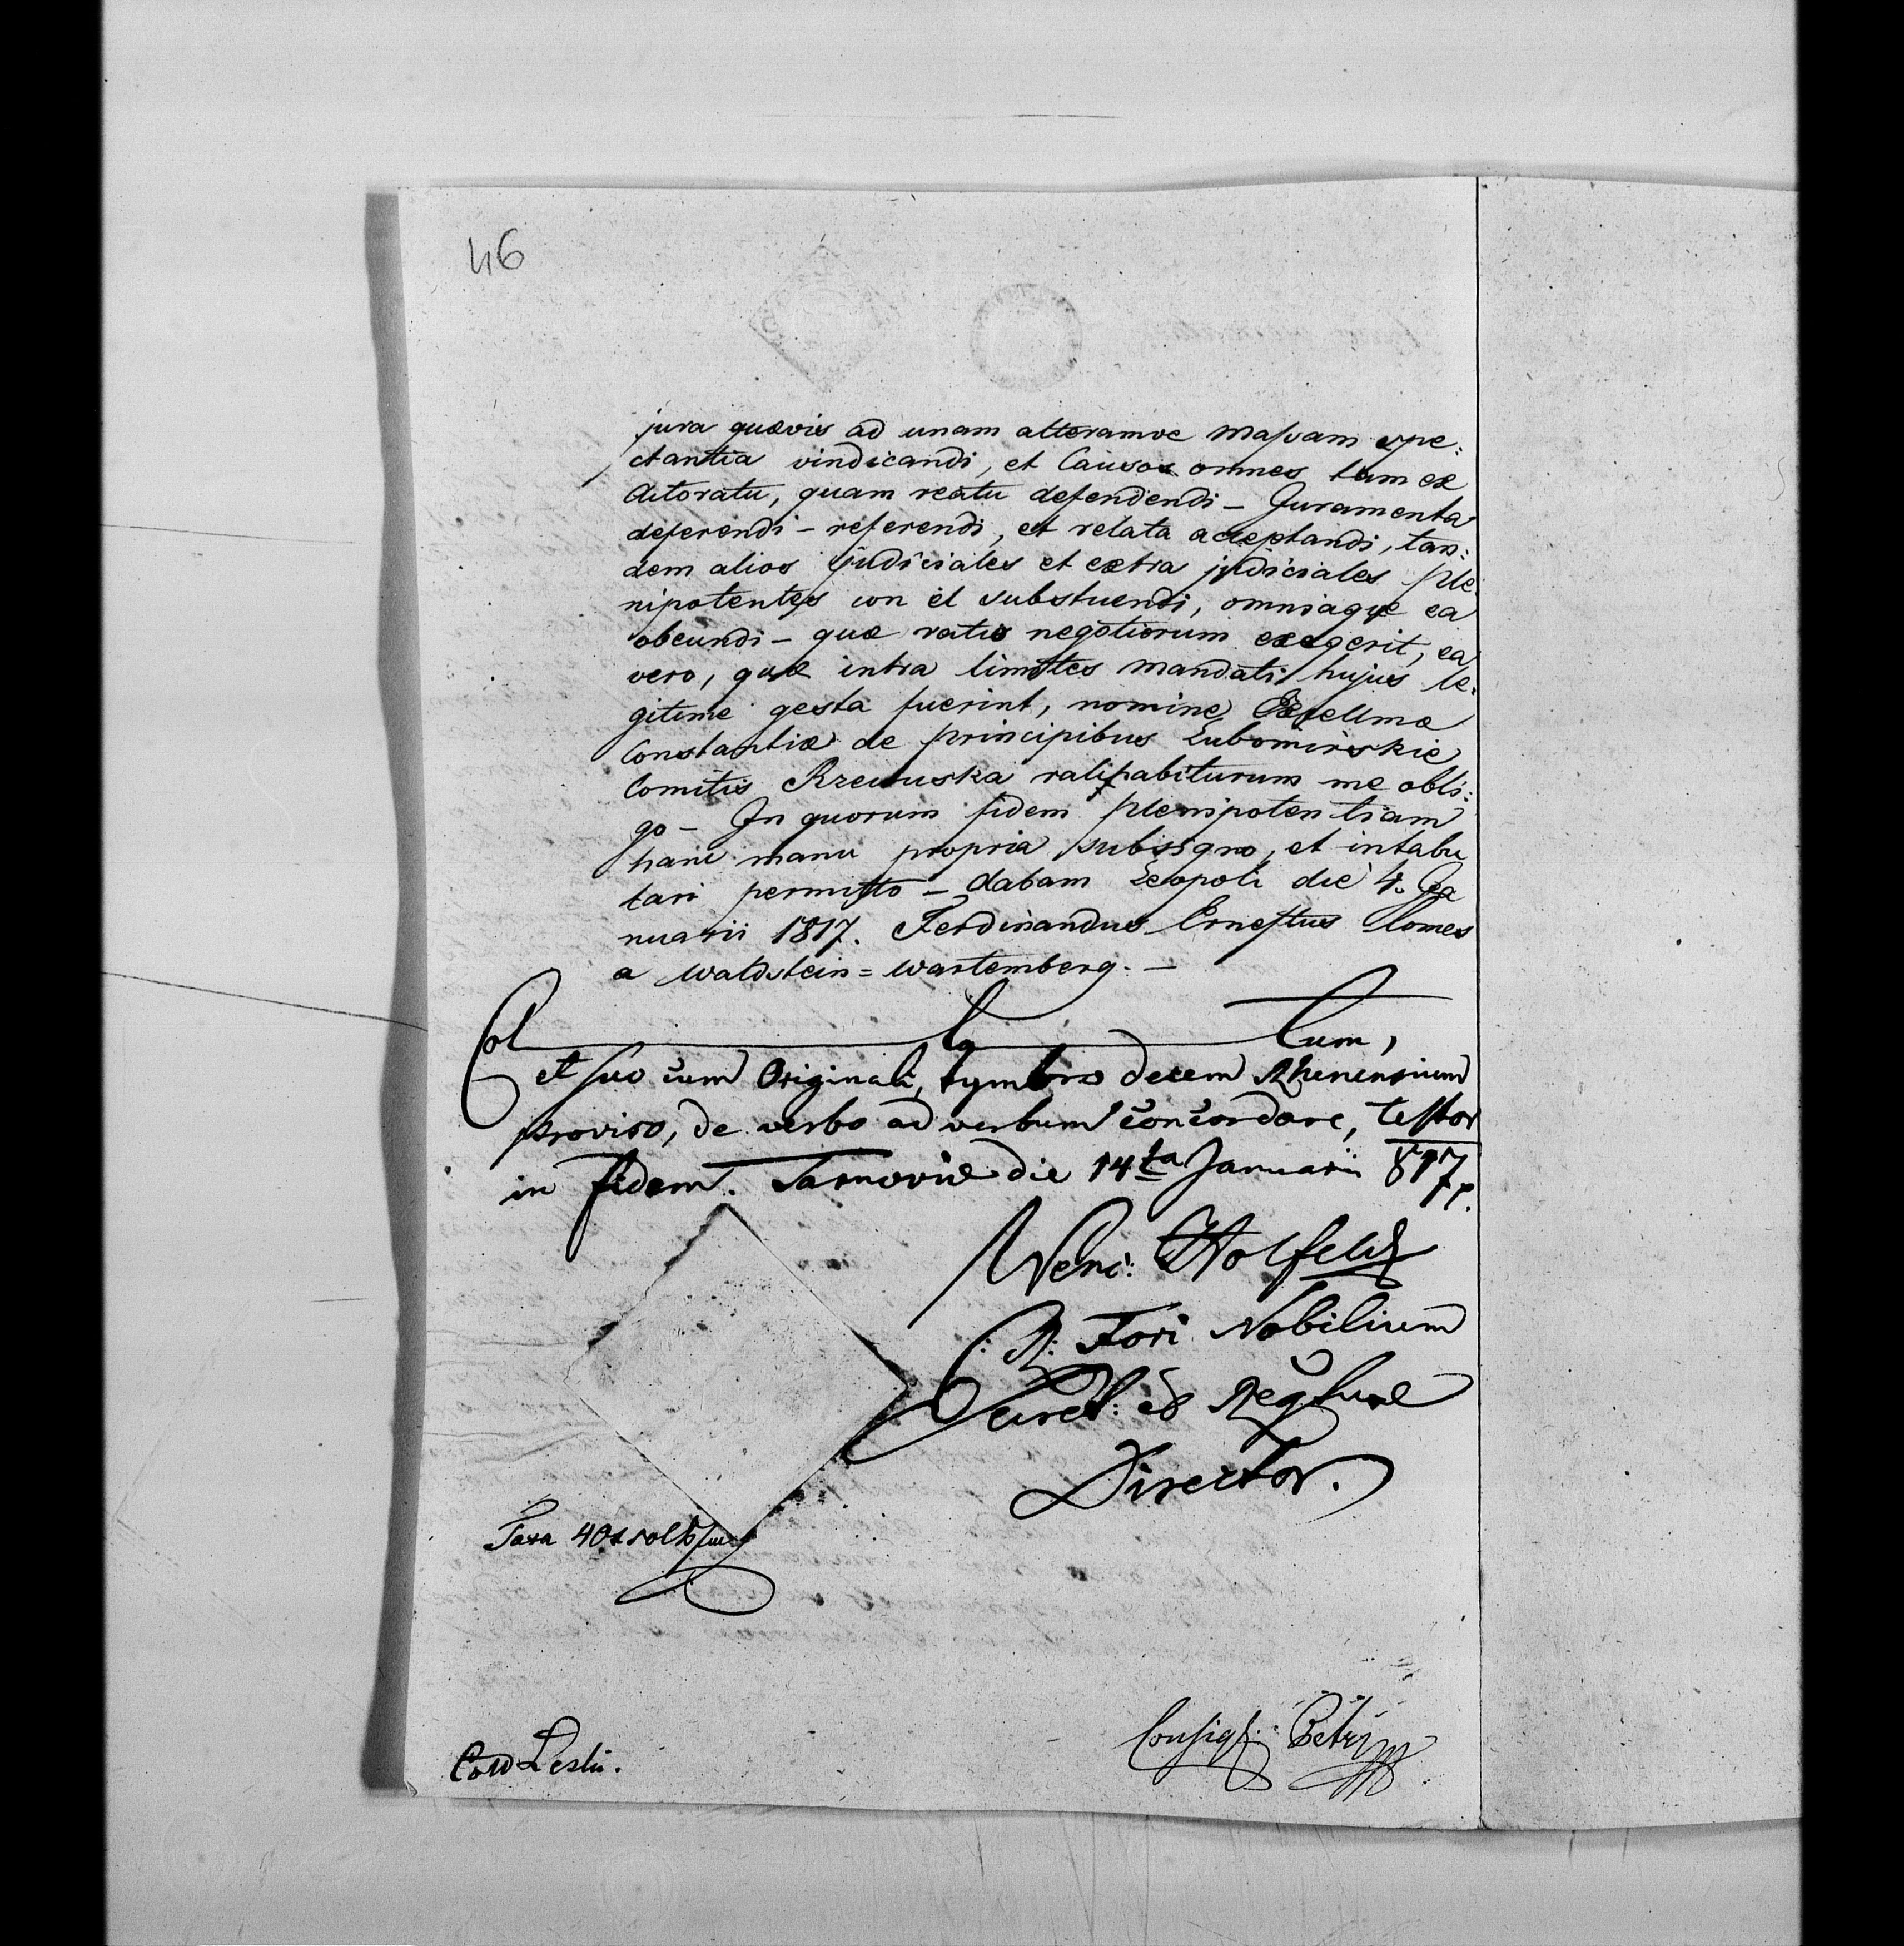 46
jura quævis ad unam alteramve Massam spe:
ctantia vindicandi, et Causas omnes tam ex
Actoratu, quam reatu defendendi – Juramenta
deferendi – referendi, et relata acceptandi, tan:
dem alios judiciales et extra judiciales ple
nipotentes con et substuendi, omniaque ea
obeundi – quæ ratio negotiorum exegerit, ea
vero, quæ intra limites Mandati hujus le:
gitime gesta fuerint, nomine Excellmæ
Constantiæ de principibus Lubomirskie
Comitis Rzewuska ratihabiturum me obli:
go – In quorum fidem plenipotentiam
hanc manu propria subsigno, et intabu
lari permitto – dabam Leopoli die 4. Ja
nuarii 1817. Ferdinandus Ernestus Comes
a Waldstein = Wartemberg. –
Col la tum,
et suo cum Originali, tymbro decem Rhenensium
proviso, de verbo ad verbum concordare, testor
in fidem. Tarnoviæ die 14ta Januarii 817
Wenc: Holfeld
C: R: Fori Nobilium
Secret: & Regturæ
Director.
Taxa 40x solt
Consig: Petry